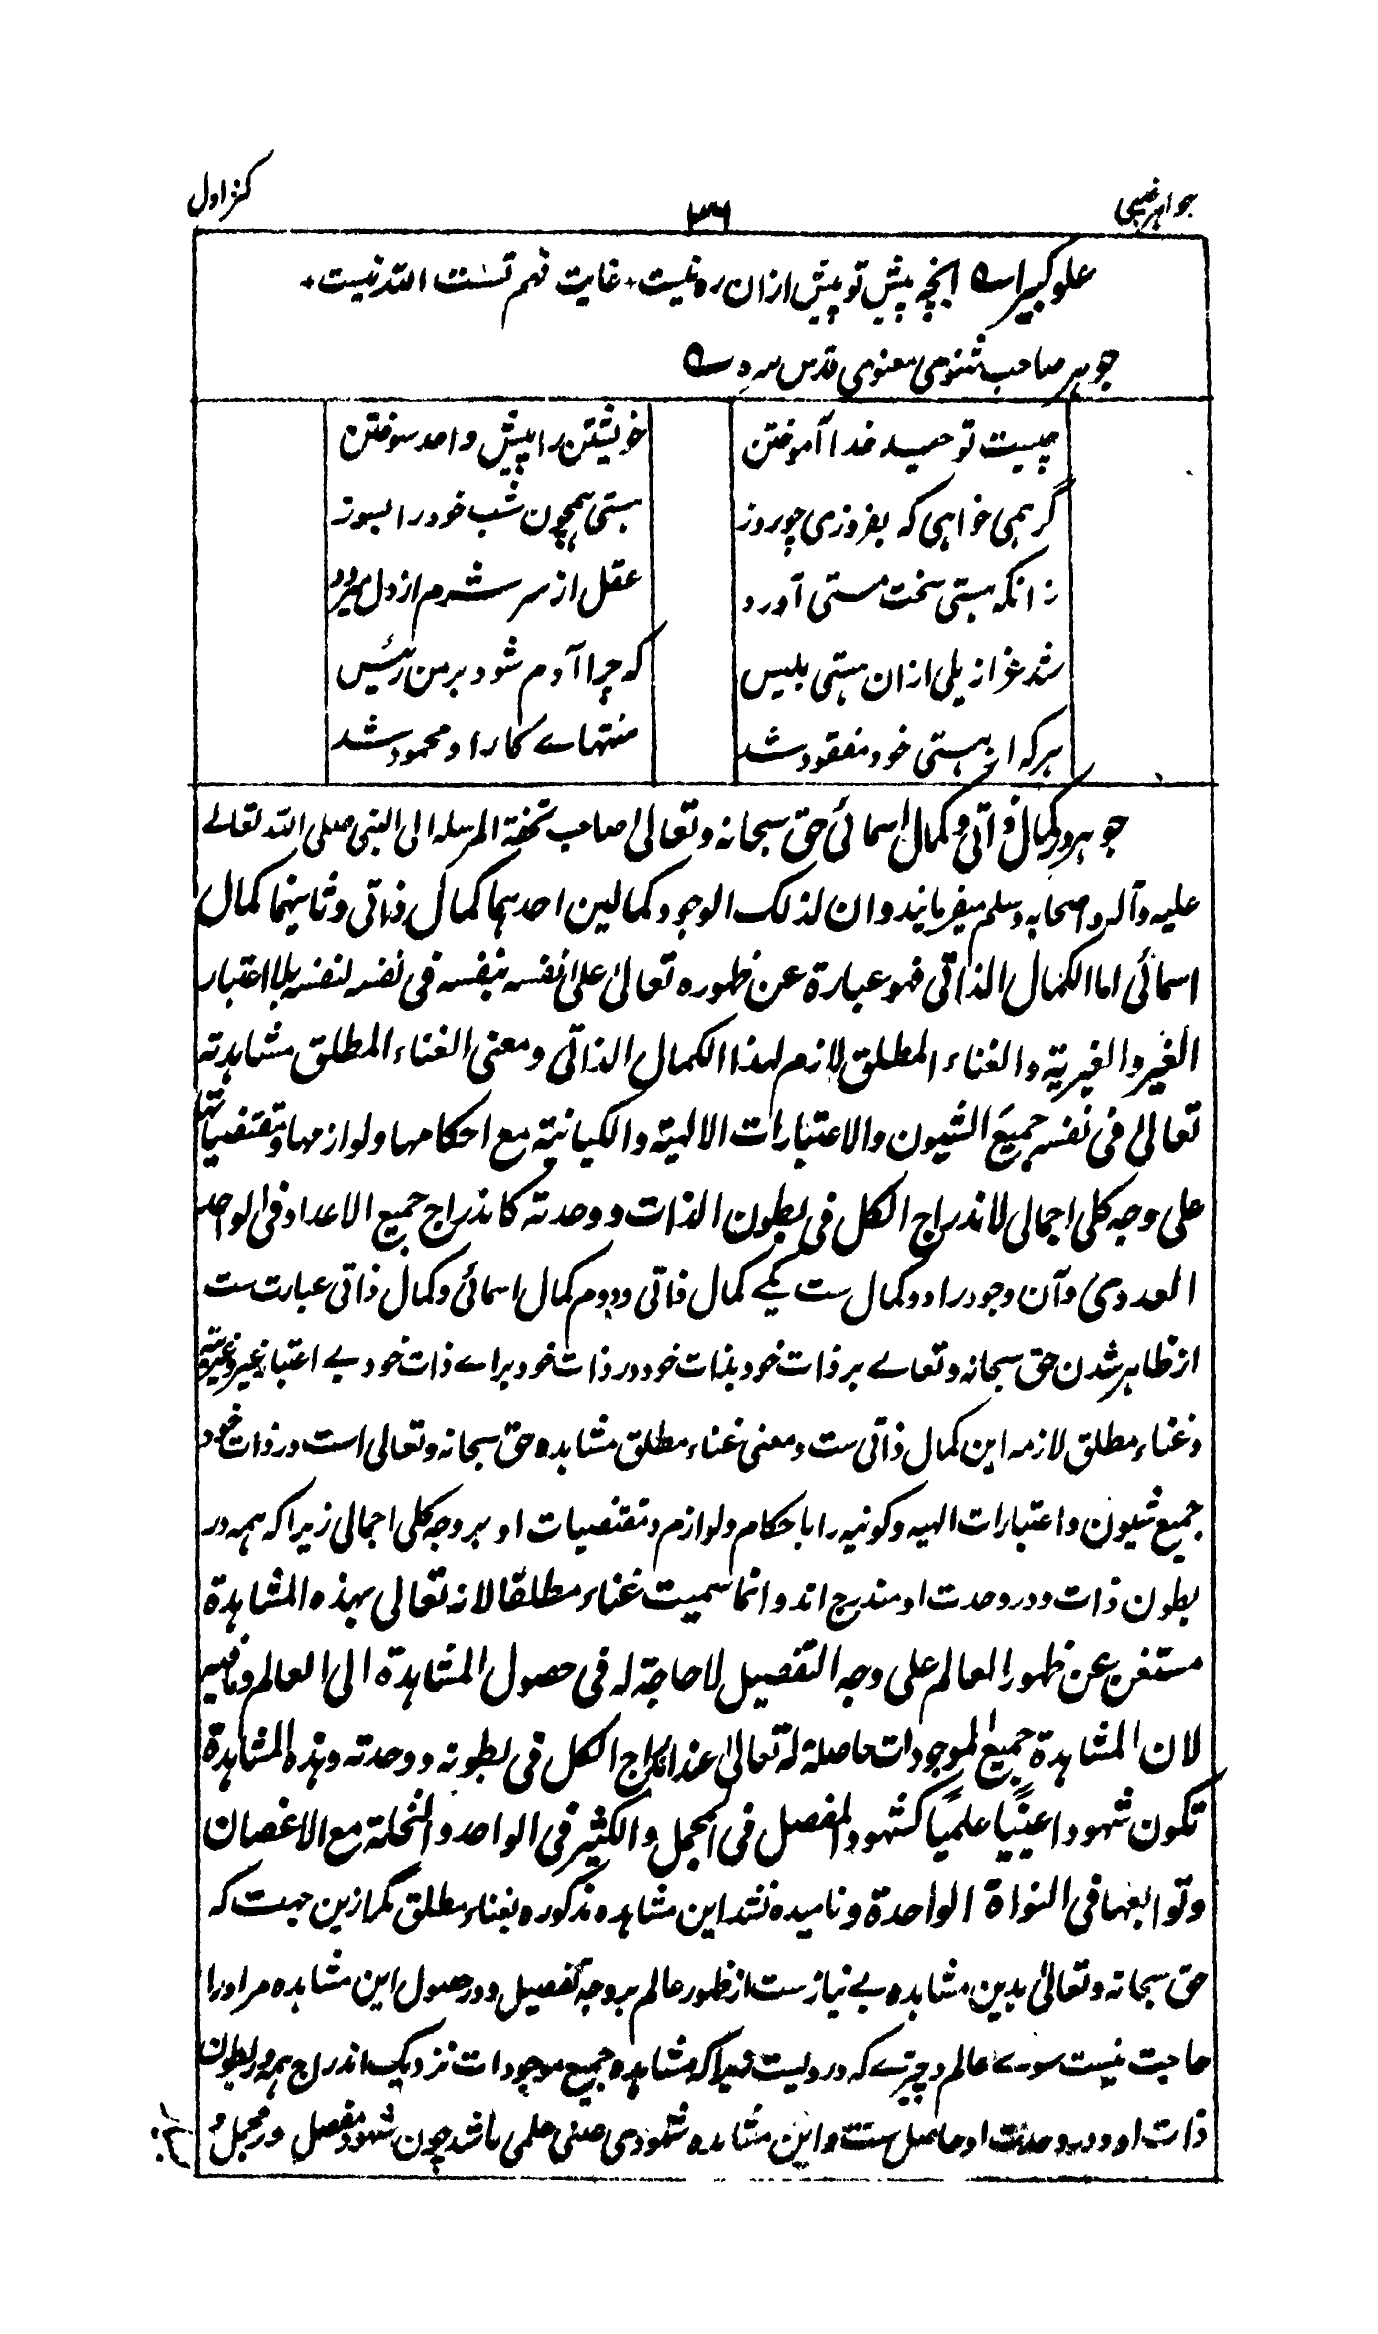 جواہر غیبی
۳۶
کنز اول
علو کبیرا ے انچہ پیش تو بیش ازان رہ نیست ٭ غایت فہم تست اللہ نیست ٭
جوہر صاحب مثنوی معنوی قدس سرہ ے
چیست توحید خدا آموختن خویشتن را پیش واحد سوختن
گر ہمی خواہی کہ بفروزی چو روز ہستی ہمچون شب خود را بسوز
زانکہ ہستی سخت مستی آورد عقل از سر شرم از دل میبرد
شد عزازیلی ازان ہستی بلیس کہ چرا آدم شود بر من رئیس
ہر کہ از ہستی خود مفقود شد منتہاے کار او محمود شد
جوہر در کمال ذاتی و کمال اسمائی حق سبحانہ و تعالی صاحب تحفۃ المرسلہ الی النبی صلی اللہ تعالے
علیہ و آلہ و اصحابہ وسلم میفرمایند و ان لذلک الوجود کمالین احدہما کمال ذاتی و ثانیہما کمال
اسمائی اما الکمال الذاتی فہو عبارۃ عن ظہورہ تعالیٰ علی نفسہ بنفسہ فی نفسہ لنفسہ بلا اعتبار
الغیر والغیریۃ والغناء المطلق لازم لہذا الکمال الذاتی و معنی الغناء المطلق مشاہدتہ
تعالیٰ فی نفسہ جمیع الشیون والاعتبارات الالہیۃ والکیانیۃ مع احکامہا ولوازمہا و مقتضیاتہا
علی وجہ کلی اجمالی لاندراج الکل فی بطون الذات و وحدتہ کاندراج جمیع الاعداد فی الواحد
العددی و آن وجود را دو کمال ست یکے کمال ذاتی و دوم کمال اسمائی و کمال ذاتی عبارت ست
از ظاہر شدن حق سبحانہ و تعالے بر ذات خود بذات خود در ذات خود براے ذات خود بے اعتبار غیر و غیریۃ
و غناء مطلق لازمہ این کمال ذاتی ست و معنی غناء مطلق مشاہدہ حق سبحانہ و تعالی است در ذات خود
جمیع شیون و اعتبارات الہیہ و کونیہ را با حکام و لوازم و مقتضیات او بر وجہ کلی اجمالی زیرا کہ ہمہ در
بطون ذات و در وحدت او مندرج اند و انما سمیت غناء مطلقا لانہ تعالی بہذہ المشاہدۃ
مستغن عن ظہور العالم علی وجہ التفصیل لا حاجۃ لہ فی حصول المشاہدۃ الی العالم و ما فیہ
لان المشاہدۃ جمیع الموجودات حاصلۃ لہ تعالیٰ عند اندراج الکل فی بطونہ و وحدتہ و ہذہ المشاہدۃ
تکون شہودا عینیا علمیا کشہود المفصل فی المجمل والکثیر فی الواحد والنخلۃ مع الاغصان
و توابعہا فی النواۃ الواحدۃ و نامیدہ نشد این مشاہدہ مذکورہ بغناء مطلق مگر ازین جہت کہ
حق سبحانہ و تعالیٰ بدین مشاہدہ بے نیاز ست از ظہور عالم بر وجہ تفصیل و در حصول این مشاہدہ مر اورا
حاجت نیست سوے عالم و چیزے کہ درویست زیرا کہ مشاہدہ جمیع موجودات نزدیک اندراج ہمہ در بطون
ذات او و در وحدت او حاصل ست و این مشاہدہ شہودی عینی علمی باشد چون شہود مفصل در مجمل و